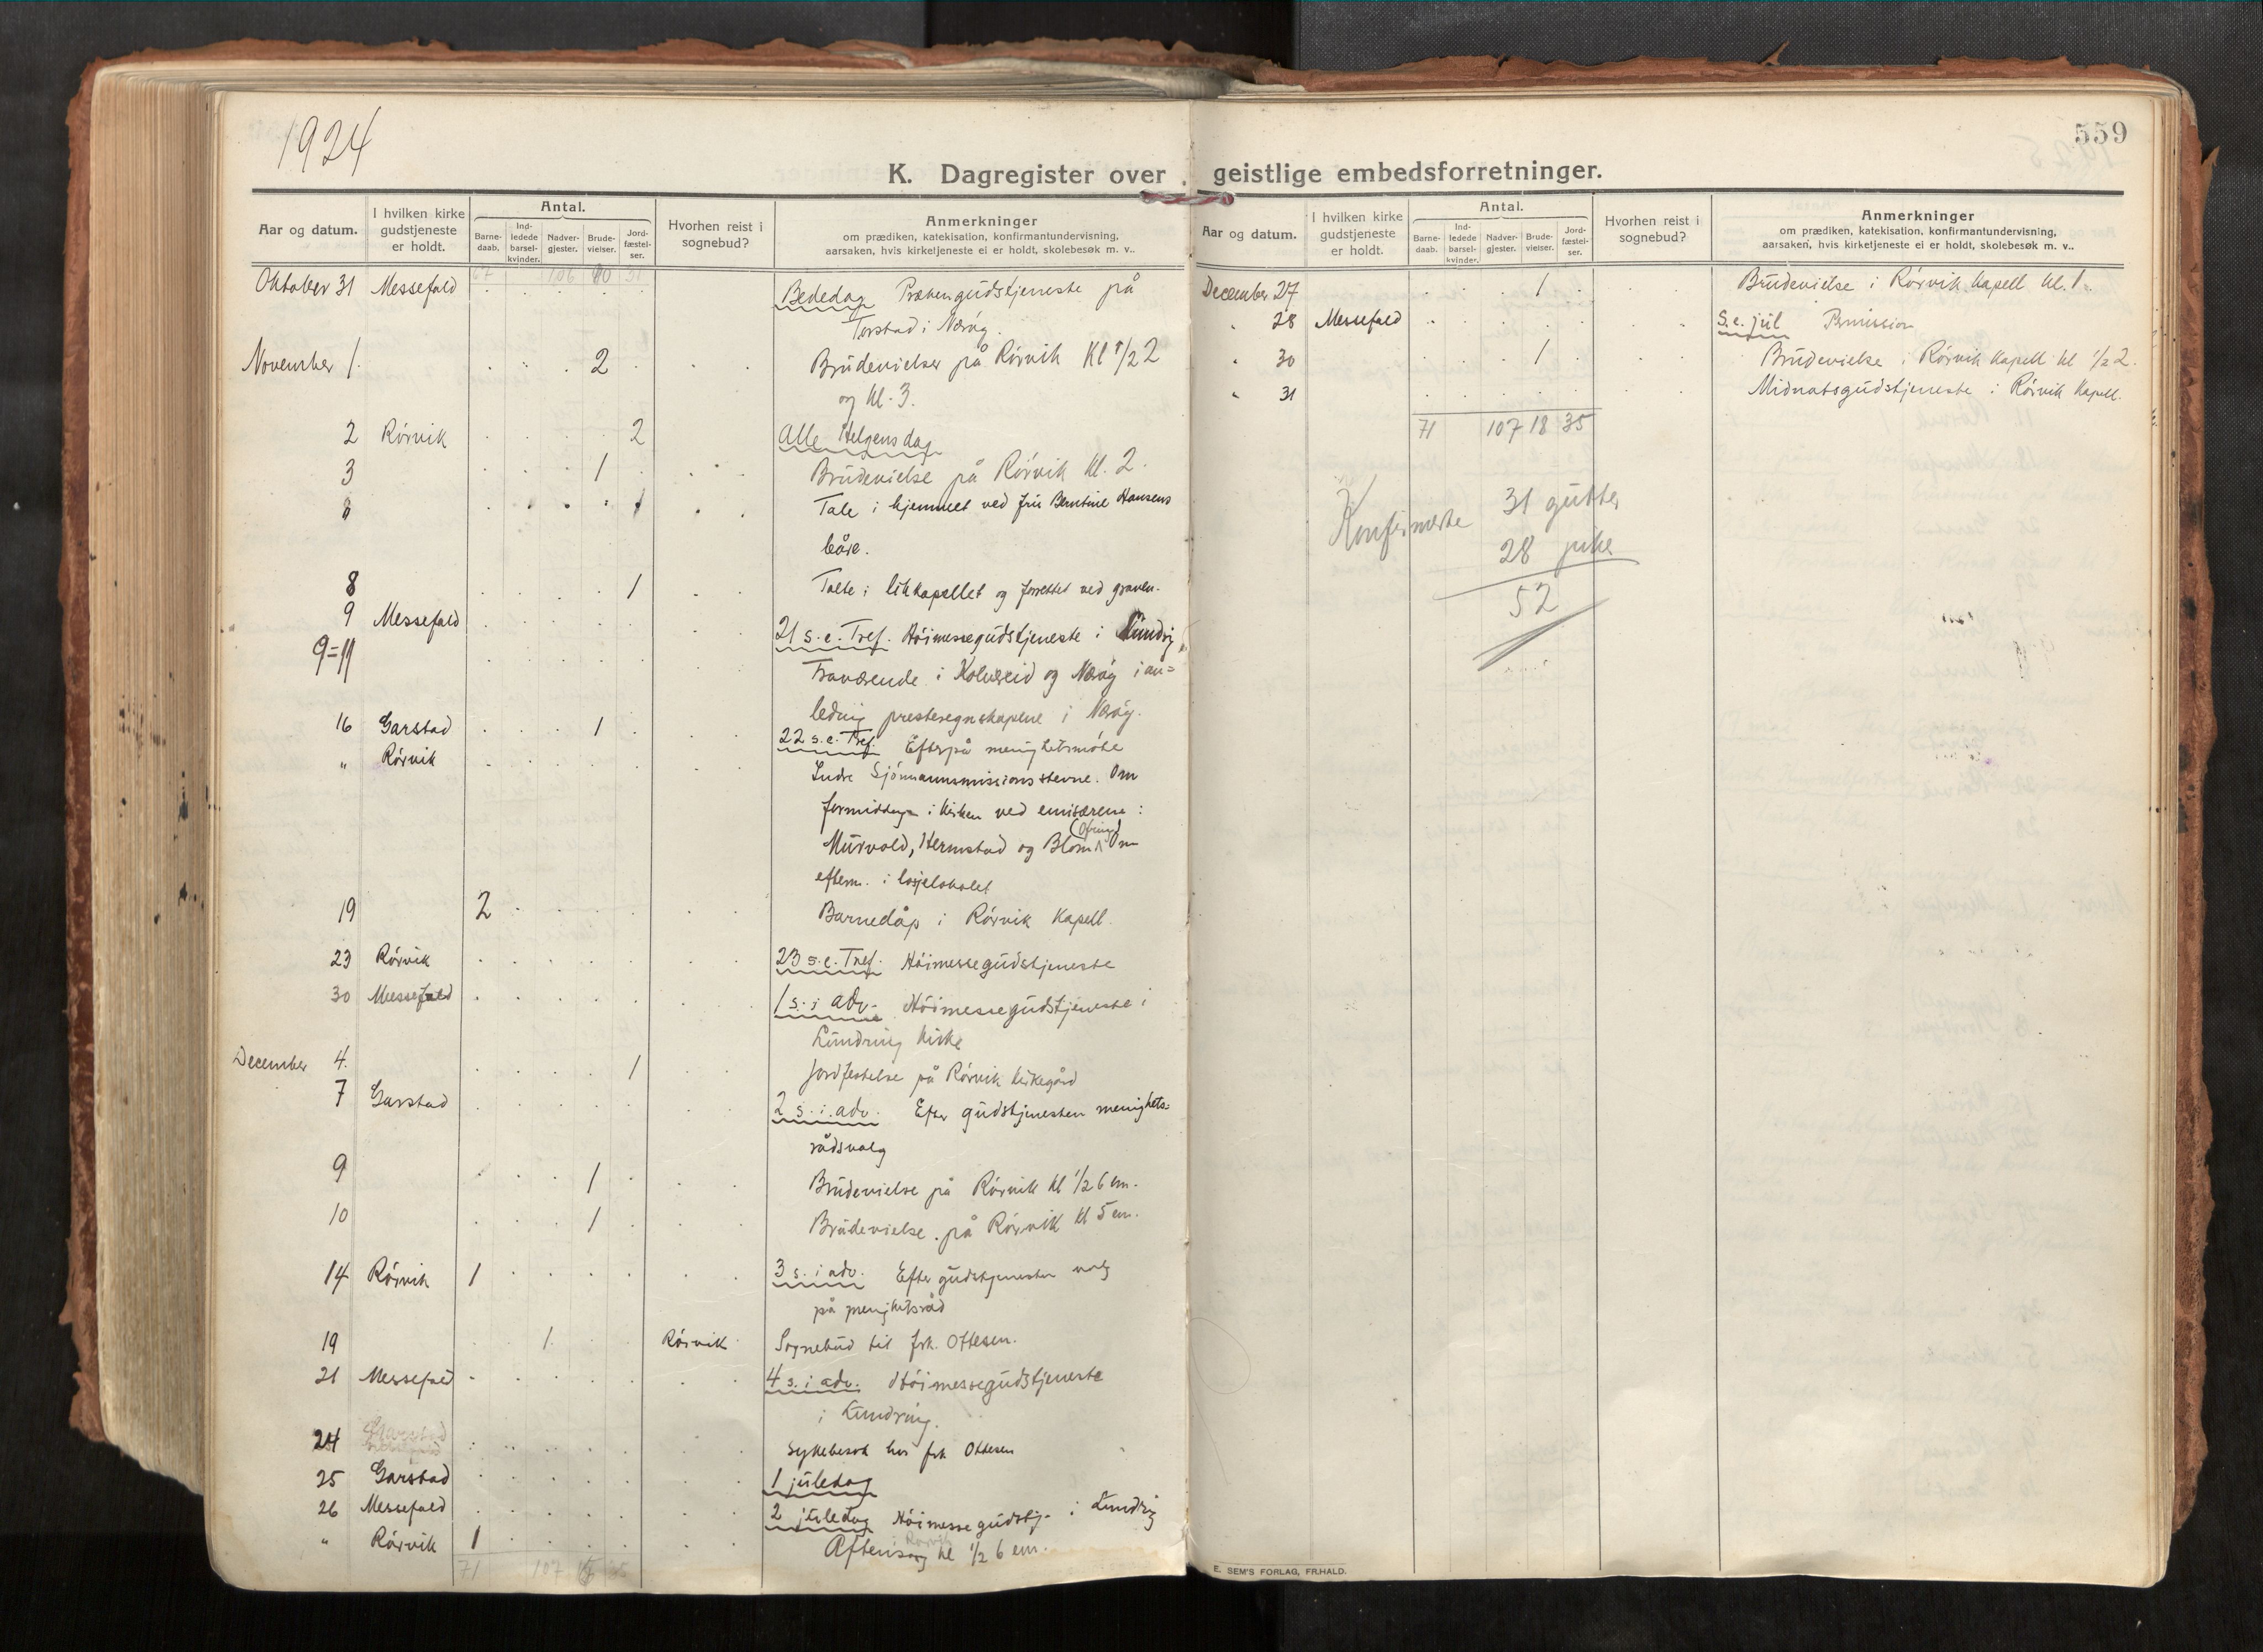 1924
559
K. Dagregister over geistlige embedsforretninger.
Aar og datum. I hvilken kirke gudstjeneste er holdt. Antal. Barne-daab. Ind-ledede barsel-kvinder. Nadver-gjester. Brude-vielser. Jord-fæstel-ser. Hvorhen reist i sognebud? Anmerkninger om prædiken, katekisation, konfirmantundervisning, aarsaken, hvis kirketjeneste ei er holdt, skolebesøk m. v..
Oktober 31 Messefald Bededag Prækengudstjeneste på
Torstad i Nærøy.
November 1. 2 Brudevielser på Rörvik Kl 1/2 2
og kl. 3.
2 Rörvik 2 Alle Helgens dag
3 1 Brudevielse på Rörvik kl. 2.
1 Tale i hjemmet ved fru Berntine Hansens
båre.
8 1 Talte i likkapellet og forrettet ved graven.
9 Messefald 21 s. e. Tref. Höimessegudstjeneste i Lundring
9=11 Fraværende i Kolvereid og Nærøy i an=
ledning presteregnskapene i Nærøy.
16 Garstad 1 22 s. e. Tref. Efterpå menighetsmöte
" Rörvik Indre Sjömannsmissions stevne. Om
formiddagen i kirken ved emisærene:
Murvold, Hermstad og Blom (Ofring) Om
efterm. i losjelokalet
19 2 Barnedåp i Rörvik Kapell.
23 Rörvik 23 s. e. Tref. Höimessegudstjeneste
30 Messefald 1 s. i adv. Höimessegudstjeneste i
Lundring Kirke
December 4. 1 Jordfestelse på Rörvik kirkegård
7 Garstad 2 s. i. adv. Efter gudstjenesten menighets=
rådsvalg
9 1 Brudevielse på Rörvik kl 1/2 6 em.
10 1 Brudevielse på Rörvik kl 5 em.
14 Rörvik 1 3 s. i adv. Efter gudstjenesten valg
på menighetsråd
19 1 Rörvik Sognebud til frk. Ottesen.
21 Messefald 4 s. i adv. Höimessegudstjeneste
i Lundring.
24 Sykebesök hos frk Ottesen
25 Garstad 1 juledag
26 Messefald 2 juledag Höimessegudstj. i Lundring
" Rörvik 1 Aftensang i Rörvik kl 1/2 6 em.
71 107
Aar og datum. I hvilken kirke gudstjeneste er holdt. Antal. Barne-daab. Ind-ledede barsel-kvinder. Nadver-gjester. Brude-vielser. Jord-fæstel-ser. Hvorhen reist i sognebud? Anmerkninger om prædiken, katekisation, konfirmantundervisning, aarsaken, hvis kirketjeneste ei er holdt, skolebesøk m. v..
December 27 1 Brudevielse i Rörvik kapell kl. 1.
" 28 Messefald S. e. jul Permission
" 30 1 Brudevielse i Rörvik Kapell kl 1/2 2.
" 31 Midnatsgudstjeneste i Rörvik Kapell.
71 107 18 35
Konfirmerte 31 gutter
28 piker
52
E. SEM'S FORLAG, FR.HALD.